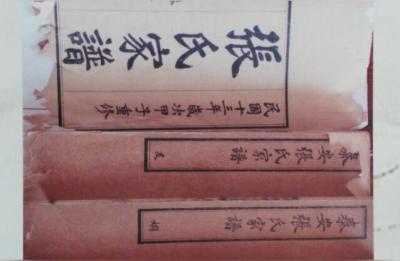 張氏家譜
民國十三年歲次甲子重修
泰安張氏家譜
友
泰安張氏家譜